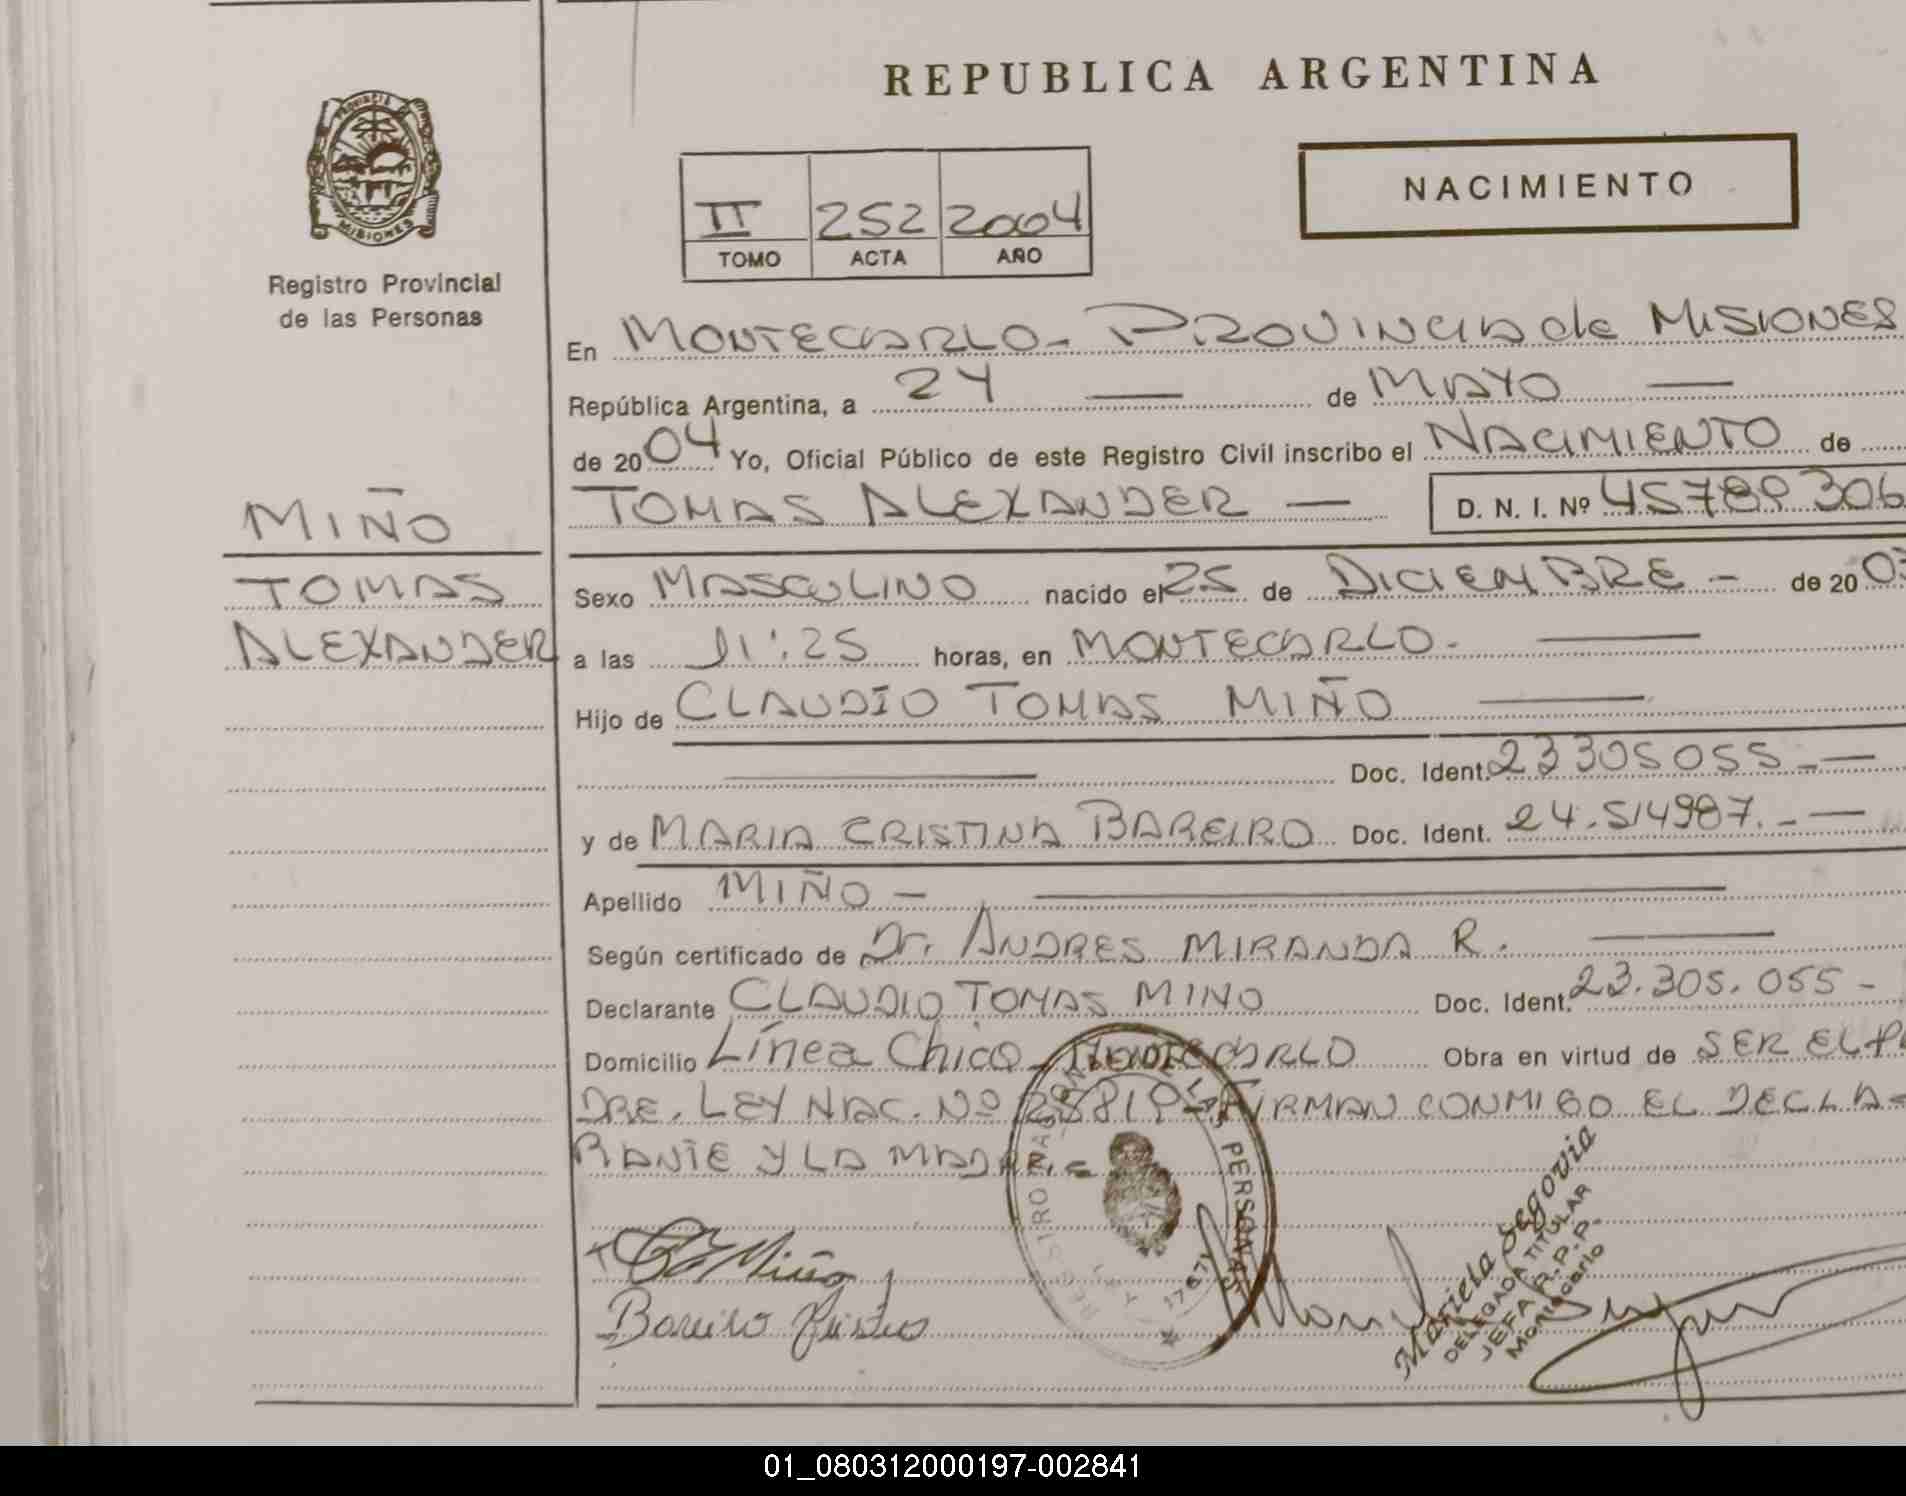 REPUBLICA ARGENTINA
PROVINCIA DE
MISIONES
Registro Provincial
de las Personas
II 252 2004
TOMO ACTA AÑO
NACIMIENTO
En MONTECARLO - PROVINCIA de MISIONES
República Argentina, a 24 — de MAYO —
de 2004 Yo, Oficial Público de este Registro Civil inscribo el NACIMIENTO de
MIÑO
TOMAS ALEXANDER — D. N. I. Nº 45789306
TOMAS
ALEXANDER
Sexo MASCULINO nacido el 25 de DICIEMBRE - de 2003
a las 11:25 horas, en MONTECARLO. —
Hijo de CLAUDIO TOMAS MIÑO —
— Doc. Ident. 23305055 - —
y de MARIA CRISTINA BAREIRO Doc. Ident. 24.514987. - —
Apellido MIÑO - —
Según certificado de Dr. ANDRES MIRANDA R. —
Declarante CLAUDIO TOMAS MINO Doc. Ident. 23.305.055 -
Domicilio Línea Chico - MONTECARLO Obra en virtud de SER EL PA
DRE. LEY NAC. Nº FIRMAN CONMIGO EL DECLA-
RANTE Y LA MADRE. -
REGISTRO DE LAS PERSONAS
LEY 1767
Miño
Bareiro
Mariela Segovia
DELEGADA TITULAR
JEFA R.P.P.
Montecarlo
01_080312000197-002841